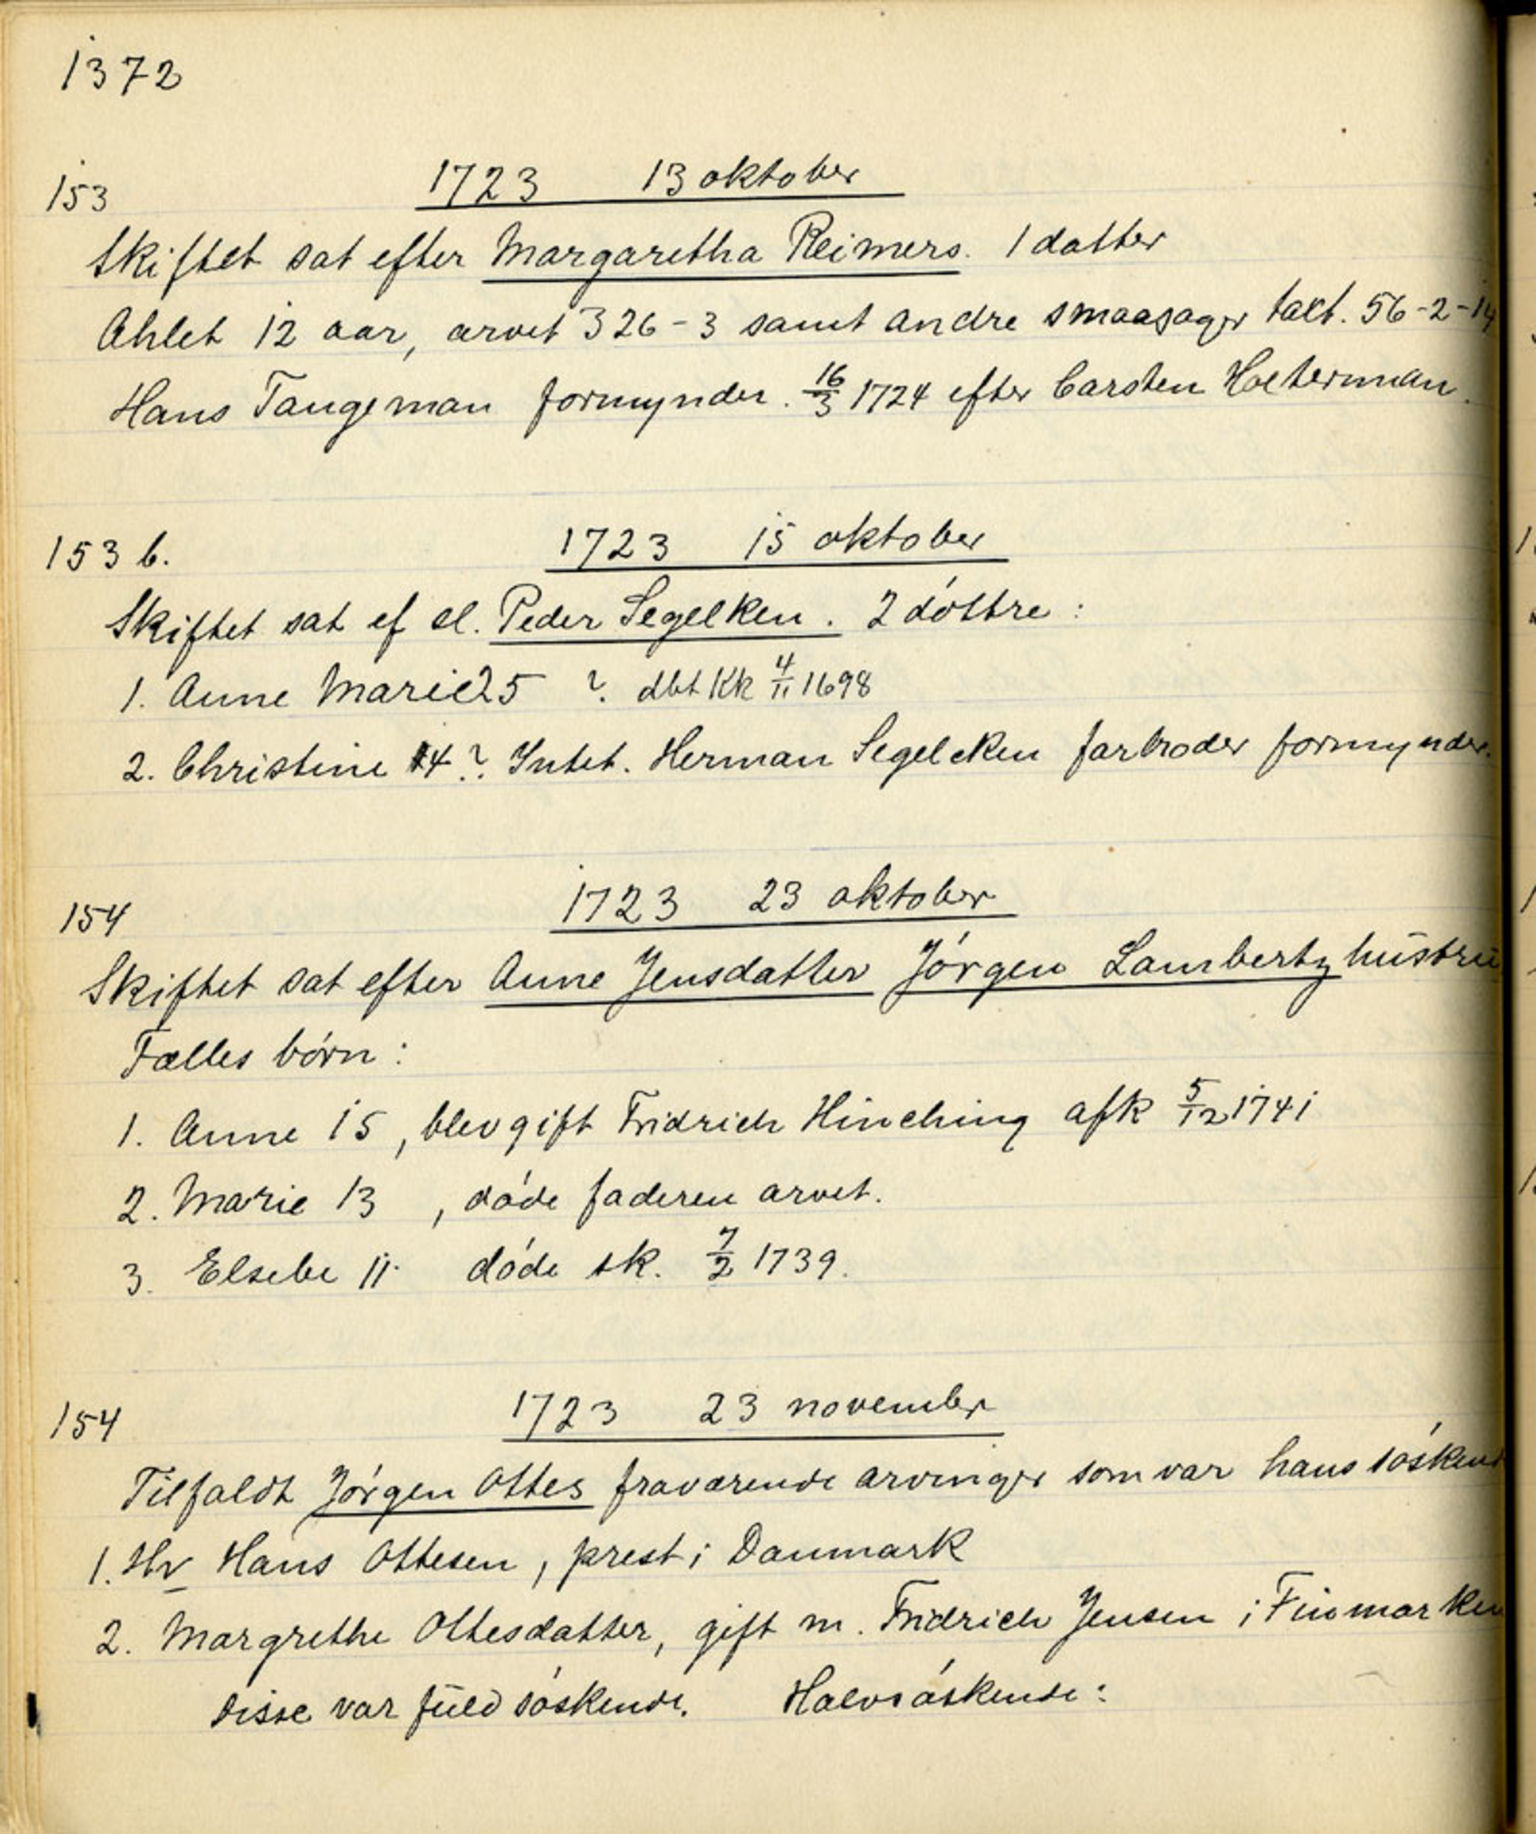 1372
153 1723 13 oktober
Skiftet sat efter Margaretha Reimers. 1 datter
Ahlet 12 aar, arvet 326-3 samt andre smaasager taxt. 56-2-14
Hans Tangeman formynder. 16/3 1724 efter Carsten Holterman.
153 b. 1723 15 oktober
Skiftet sat ef sl. Peder Segelken. 2 döttre:
1. Anne Marie 25 ? dbt Kk 4/11 1698
2. Christine 14 ? Intet. Herman Segelcken farbroder formynder.
154 1723 23 oktober
Skiftet sat efter Anne Jensdatter Jörgen Lambertz hustru
Fælles börn:
1. Anne 15, blev gift Fridrich Hinching afk 5/12 1741
2. Marie 13, döde faderen arvet.
3. Elsebe 11. döde sk. 7/2 1739.
154 1723 23 november
Tilfaldt Jörgen Ottes fraværende arvinger som var hans söskend
1. Hr Hans Ottesen, prest i Danmark
2. Margrethe Ottesdatter, gift m. Fridrich Jensen i Finmarken
disse var fuld söskende. Halvsöskende: